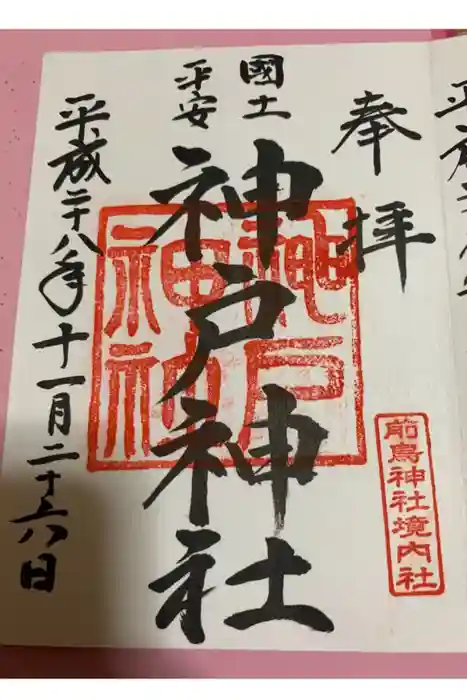 奉拝
國土
平安
神戸神社
平成二十八年十一月二十六日
神戸
神社
前鳥神社境内社